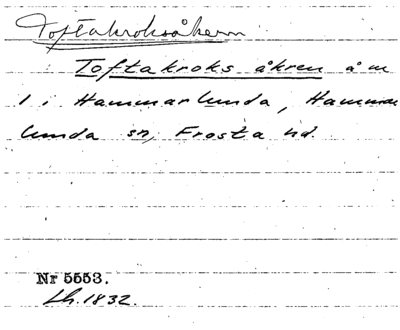 Toftakroksåkern
Toftakroks åkren å m
1 i Hammarlunda, Hammar
lunda sn, Frosta hd.
Nr 5553.
Lh. 1832.